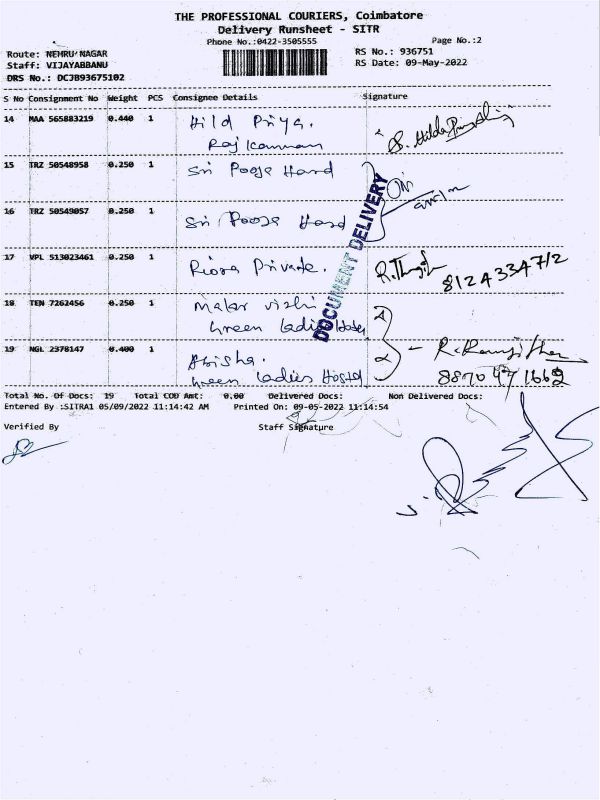 THE PROFESSIONAL COURIERS, Coimbatore
Delivery Runsheet - SITR
Phone No.:0422-3505555 Page No.:2
Route: NEHRU NAGAR RS No.: 936751
Staff: VIJAYABBANU RS Date: 09-May-2022
DRS No.: DCJB93675102
S No Consignment No Weight PCS Consignee Details Signature
14 MAA 565883219 0.440 1 Hild Priya.
Raj Kannan
15 TRZ 50548958 0.250 1 Sri Pooja Hard
16 TRZ 50549057 0.250 1 Sri Pooja Hard
DOCUMENT DELIVERY
17 VPL 513023461 0.250 1 Private. 8124334712
18 TEN 7262456 0.250 1 Malar vizhi
Green Ladies Hostel
19 NGL 2378147 0.400 1 Abisha.
Green Ladies Hostel 8870471662
Total No. Of Docs: 19 Total COD Amt: 0.00 Delivered Docs: Non Delivered Docs:
Entered By :SITRA1 05/09/2022 11:14:42 AM Printed On: 09-05-2022 11:14:54
Verified By Staff Signature